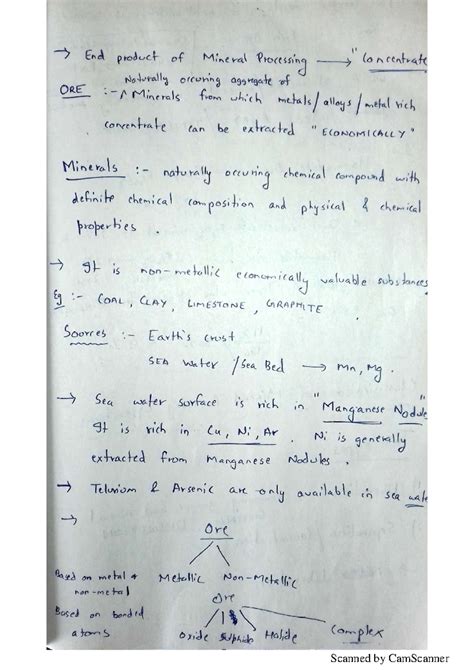 → End product of Mineral Processing ⟶ "Concentrate
Naturally occuring aggregate of
ORE :- ^ Minerals from which metals/alloys/metal rich
concentrate can be extracted "ECONOMICALLY"
Minerals :- naturally occuring chemical compound with
definite chemical composition and physical & chemical
properties.
→ It is non-metallic economically valuable substances
Eg :- COAL, CLAY, LIMESTONE, GRAPHITE.
Sources :- Earth's crust
SEA water / Sea Bed ⟶ Mn, Mg.
→ Sea water surface is rich in "Manganese Nodule"
It is rich in Cu, Ni, Ar. Ni is generally
extracted from Manganese Nodules.
→ Telurium & Arsenic are only available in sea wate
→ Ore
Based on metal & Metallic Non-Metallic
non-metal
Ore
Based on bonded
atoms Oxide Sulphide Halide Complex
Scanned by CamScanner